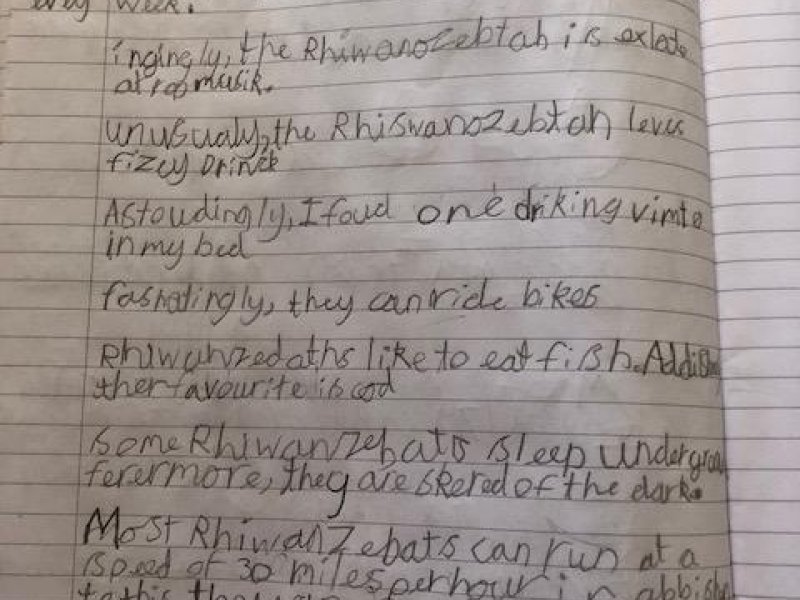 every week.
ingingly, the Rhiwanozebtah is exlede
at rog musik.
unusualy, the Rhiswanozebtah leves
fizey Drinck
Astoudingly, I foud one driking vimto
in my bed
fashatingly, they can ride bikes
Rhiwanzedaths like to eat fish. Addish
ther favourite is cod
some Rhiwanzebats sleep undergrou
ferermore, they are skered of the dark.
Most Rhiwanzebats can run at a
speed of 30 miles per hour in abbish
to this they